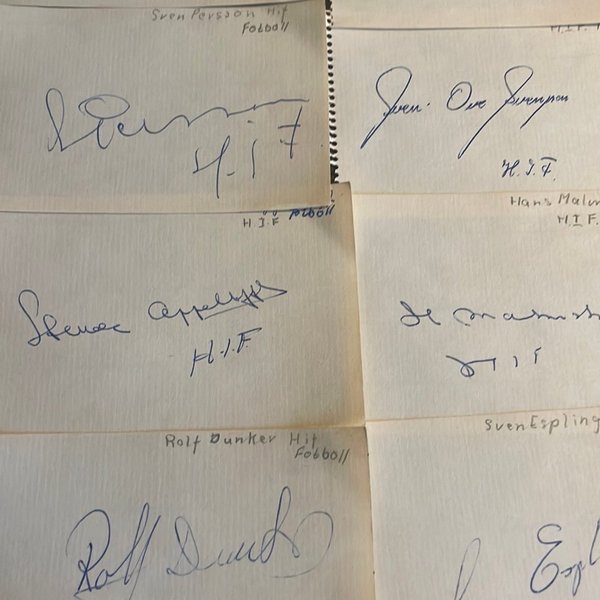 Sven Persson Hif
Fotboll
H.I.F
H.I.F. 
Sven-Ove Svensson
H.I.F.
H.I.F Fotboll
H.I.F
Hans Malm
H.I.F.
H Malm
HIF
Rolf Dunker Hif
Fotboll
Rolf Dunker
Sven Espling
Espl